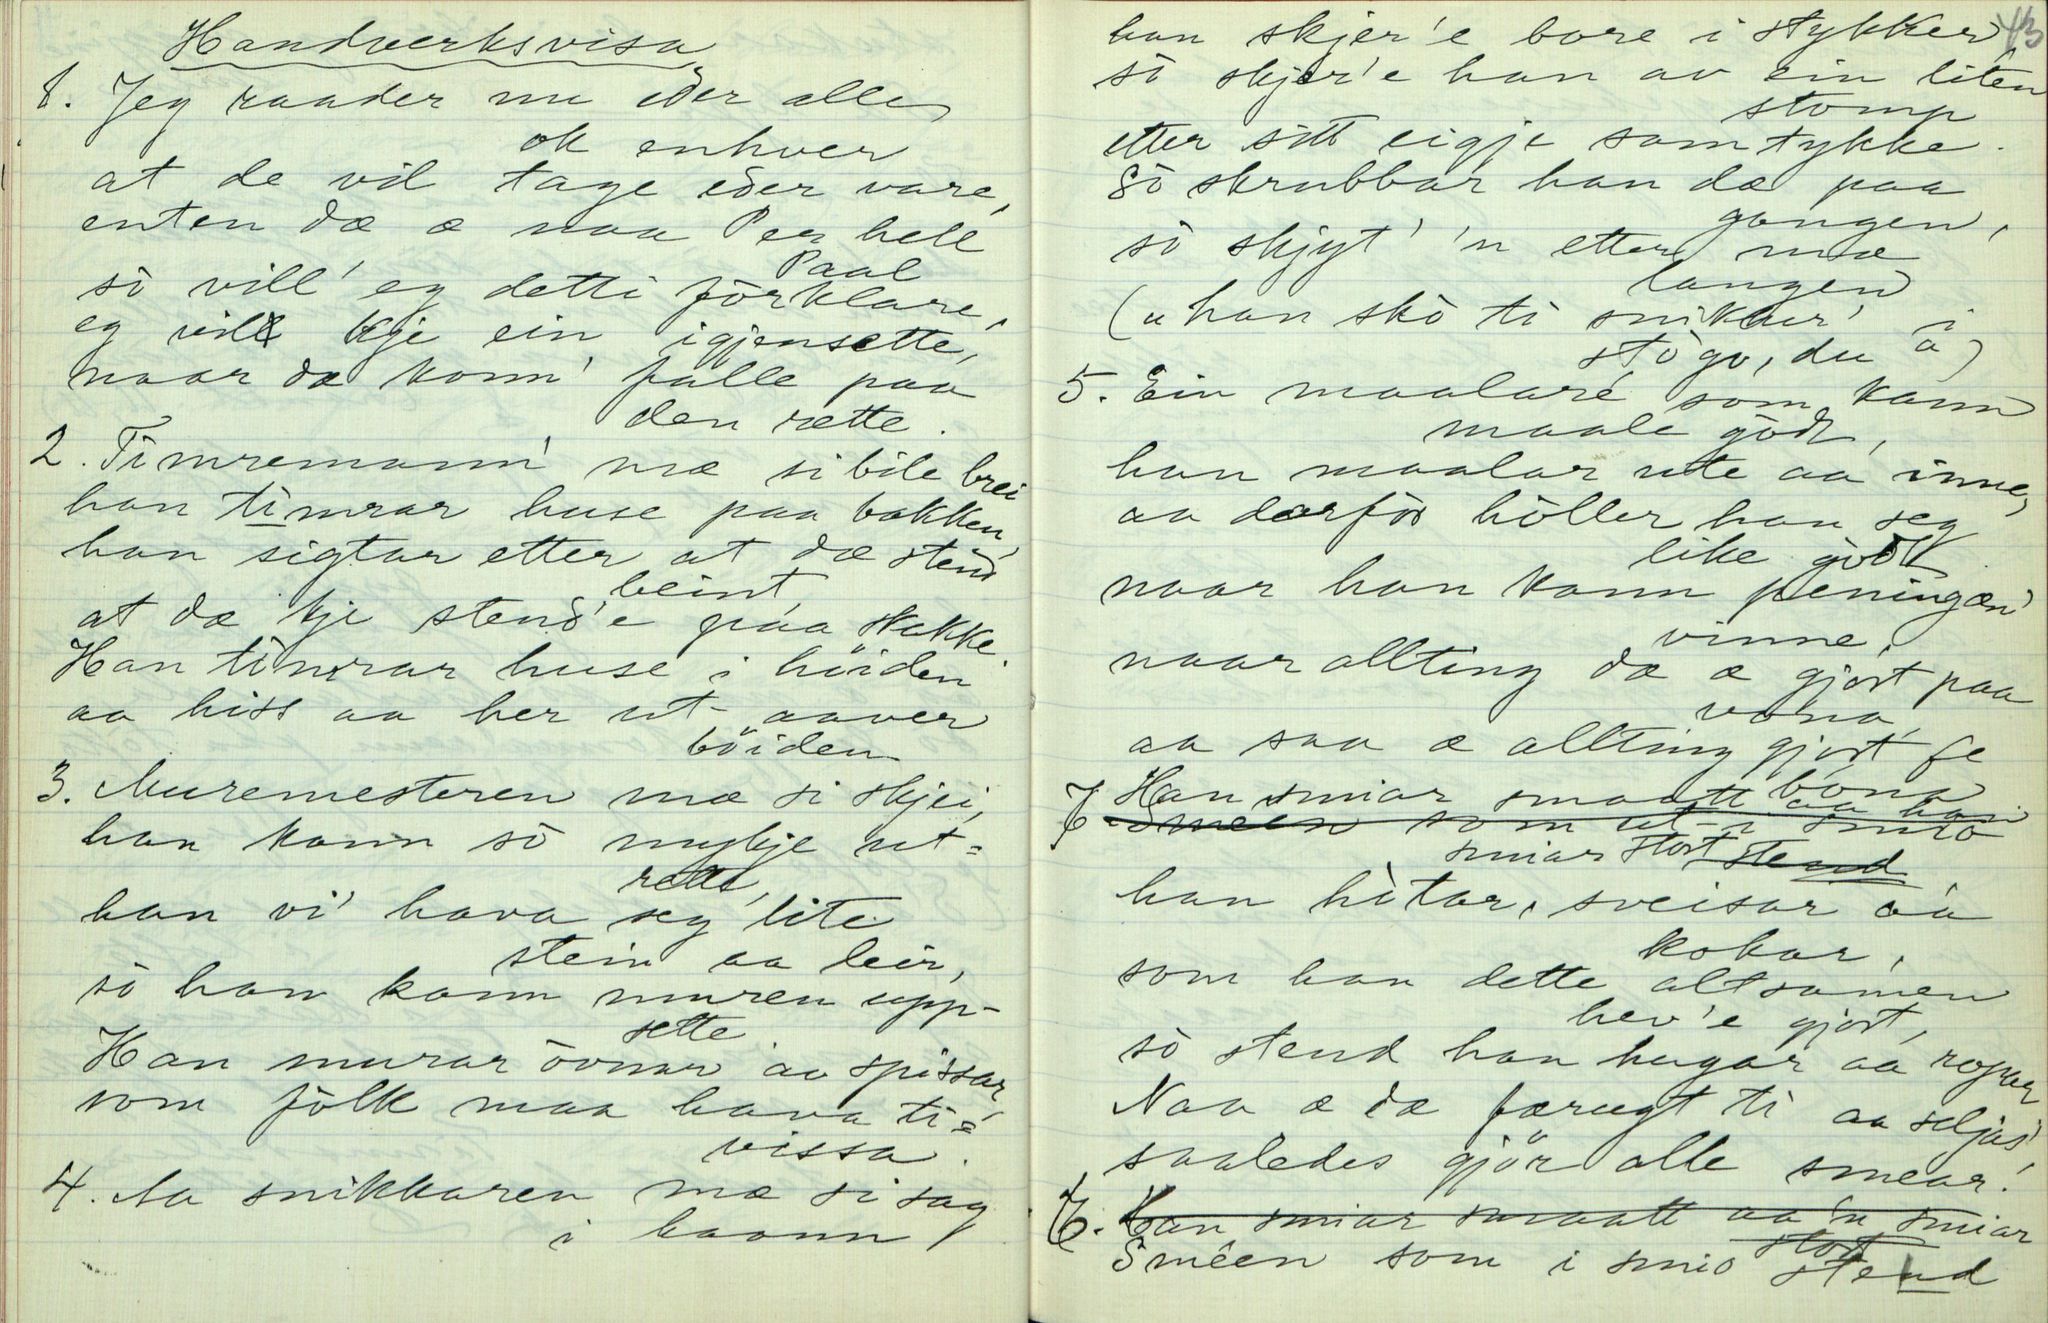 Handverksvisa
1. Jeg raader nu eder alle
ok enhver
at de vil tage eder vare,
enten dæ æ naa Per hell
Paal
so vill' eg detti forklare,
eg vill kje ein igjensette,
naar dæ konn' falle paa
den rette.
2. Timremann' mæ si bile brei
han timrar huse paa bakken,
han sigtar etter at dæ stend
beint
at dæ kje stend'e paa skakke.
Han timrar huse i höiden
aa hiss aa her ut-aaver
böiden
3. Muremesteren mæ si skjei,
han kann so mykje ut=
rette,
han vi' hava seg lite
stein aa leir,
so han kann muren upp-
sette
Han murar ovnar aa spissar,
som folk maa hava ti=
vissa.
4. Aa snikkaren mæ si sag
i haann
43
han skjer'e bore i stykker,
so skjer'e han av ein liten
stomp
etter sitt eigje samtykke.
So skrubbar han dæ paa
gongen,
so skjyt' 'n etter mæ
langen
(u han sko ti snikker' i
stogo, du å)
5. Ein maalare som kann
maale godt,
han maalar ute aa inne,
aa derfor holler han seg
like godt
naar han kann peningæn'
vinne,
naar allting dæ æ gjort paa
vona,
aa saa æ allting gjort fe
bona
7 Han smiar smaatt aa han
6 Smeen som ut-i smio
smiar stort stend
han hitar, sveisar aa
kokar,
som han dette altsamen
hev'e gjort,
so stend han hugar aa ropar
Naa æ dæ færugt ti aa seljas!
saaledes gjör alle smear!
7. Han smiar smaatt aa 'n smiar
stort
6. Smeen som i smio stend